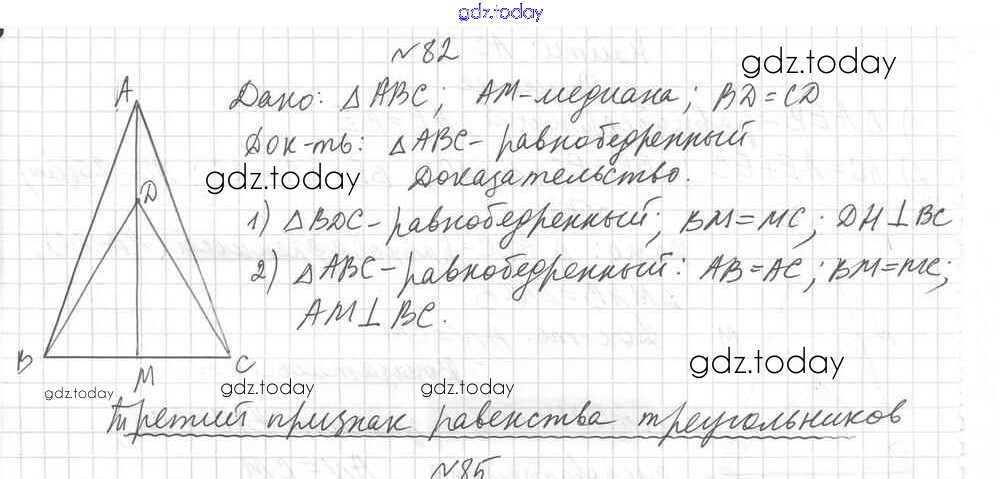 gdz.today
№82
gdz.today
A
Дано: △ ABC; AM-медиана; BD=CD
Док-ть: △ABC- равнобедренный
gdz.today
Доказательство.
D
1) △BDC-равнобедренный; BM=MC; DH⊥BC
2) △ABC-равнобедренный: AB=AC; BM=MC;
AM⊥BC.
B
M
C
gdz.today
gdz.today
gdz.today
gdz.today
Третий признак равенства треугольников
№85